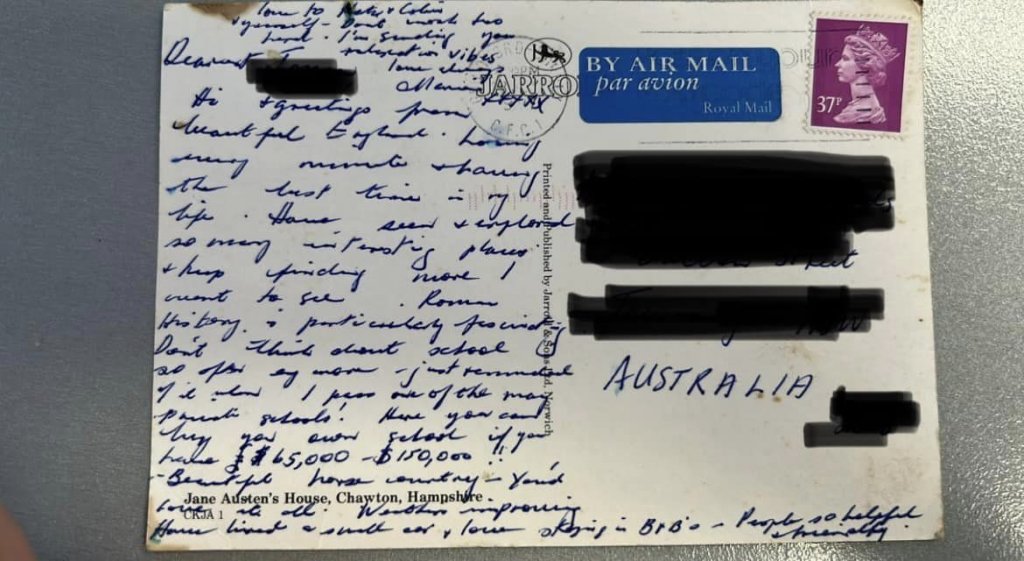 love to Peter & Colin
& yourself - Don't work too
hard - I'm sending you
relaxation vibes
love always
XXXX
Dearest
Hi & greetings from
beautiful England. Loving
every minute & having
the best time in my
life. Have seen & explored
so many interesting places
& keep finding more I
want to see. Roman
History is particularly fascinating
Don't think about school
so often any more - just reminded
of it when I pass one of the many
Private schools! Here you can
buy your own school if you
have $65,000 - $150,000!!
- Beautiful horse country - You'd
love it all. Weather improving
Have hired a small car & love staying in B&B's - People so helpful
& friendly
Jane Austen's House, Chawton, Hampshire
CKJA 1
Printed and Published by Jarrold & Sons Ltd, Norwich
JARRO
BY AIR MAIL
par avion
Royal Mail
37P
Street
NSW
AUSTRALIA